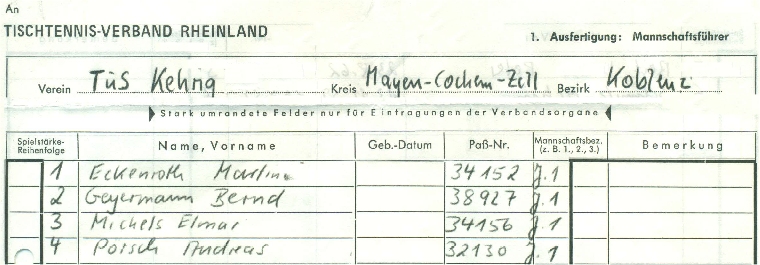 An
TISCHTENNIS-VERBAND RHEINLAND
1. Ausfertigung: Mannschaftsführer
Verein TuS Kehrig Kreis Mayen-Cochem-Zell Bezirk Koblenz
Stark umrandete Felder nur für Eintragungen der Verbandsorgane
Spielstärke-Reihenfolge Name, Vorname Geb.-Datum Paß-Nr. Mannschaftsbez. (z. B. 1., 2., 3.) Bemerkung
1 Eckenroth Martina 34152 J.1
2 Geyermann Bernd 38927 J.1
3 Michels Elmar 34156 J.1
4 Porsch Andreas 32130 J.1